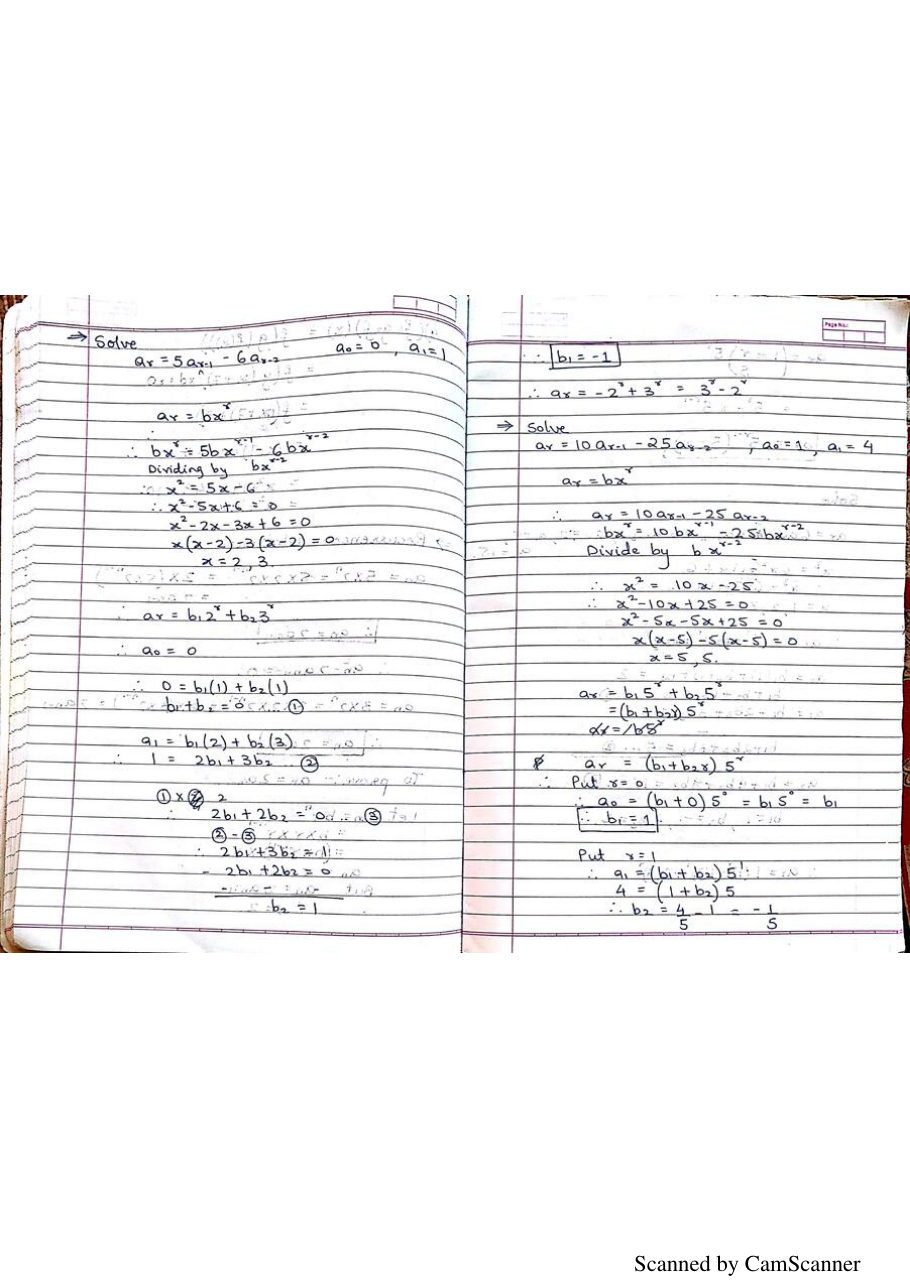 → Solve
aᵣ = 5aᵣ₋₁ - 6aᵣ₋₂   a₀ = 0 , a₁ = 1
aᵣ = bxʳ
∴ bxʳ = 5bxʳ⁻¹ - 6bxʳ⁻²
Dividing by bxʳ⁻²
∴ x² = 5x - 6
∴ x² - 5x + 6 = 0
x² - 2x - 3x + 6 = 0
x(x-2) - 3(x-2) = 0
x = 2, 3.
∴ aᵣ = b₁2ʳ + b₂3ʳ
∴ a₀ = 0
∴ 0 = b₁(1) + b₂(1)
b₁ + b₂ = 0 ... ①
a₁ = b₁(2) + b₂(3)
∴ 1 = 2b₁ + 3b₂ ②
① × 2
2b₁ + 2b₂ = 0 ... ③
② - ③
∴ 2b₁ + 3b₂ = 1
- 2b₁ + 2b₂ = 0
b₂ = 1
Page No.:
∴ b₁ = -1
∴ aᵣ = -2ʳ + 3ʳ = 3ʳ - 2ʳ
⇒ Solve
aᵣ = 10aᵣ₋₁ - 25aᵣ₋₂ , a₀ = 1 , a₁ = 4
aᵣ = bxʳ
∴ aᵣ = 10aᵣ₋₁ - 25aᵣ₋₂
bxʳ = 10bxʳ⁻¹ - 25bxʳ⁻²
Divide by bxʳ⁻²
∴ x² = 10x - 25
∴ x² - 10x + 25 = 0
x² - 5x - 5x + 25 = 0
x(x-5) - 5(x-5) = 0
x = 5, 5.
aᵣ = b₁5ʳ + b₂5ʳ
= (b₁ + b₂r) 5ʳ
aᵣ = (b₁ + b₂r) 5ʳ
∴ Put r = 0
∴ a₀ = (b₁ + 0) 5⁰ = b₁5⁰ = b₁
∴ b₁ = 1
Put r = 1
∴ a₁ = (b₁ + b₂) 5¹
4 = (1 + b₂) 5
∴ b₂ = 4/5 - 1 = -1/5
Scanned by CamScanner